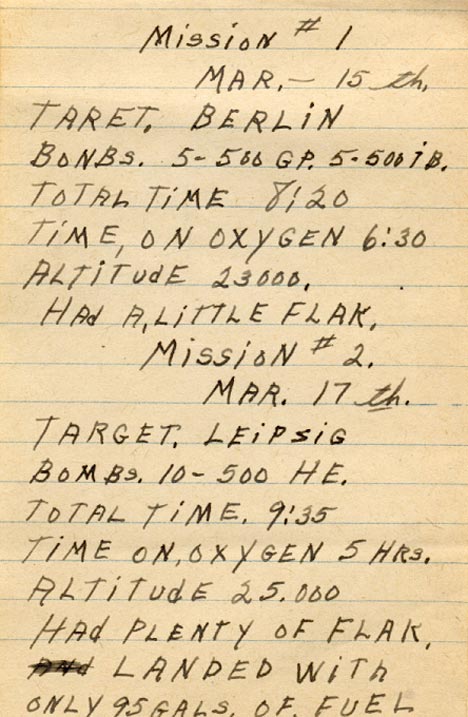 Mission # 1
MAR.- 15 th.
TARET. BERLIN
BONBs. 5-500 GP. 5-500 iB.
TOTAL TiME 8:20
TiME, ON OXYGEN 6:30
ALTiTUdE 23000.
HAd A, LiTTLE FLAK.
Mission # 2.
MAR. 17 th.
TARGET. LEiPsiG
BOMBs. 10-500 HE.
TOTAL TiME. 9:35
TiME ON, OXYGEN 5 HRs.
ALTiTUdE 25.000
HAd PLENTY OF FLAK.
ANd LANDED WiTh
ONLY 95 GALS. OF FUEL